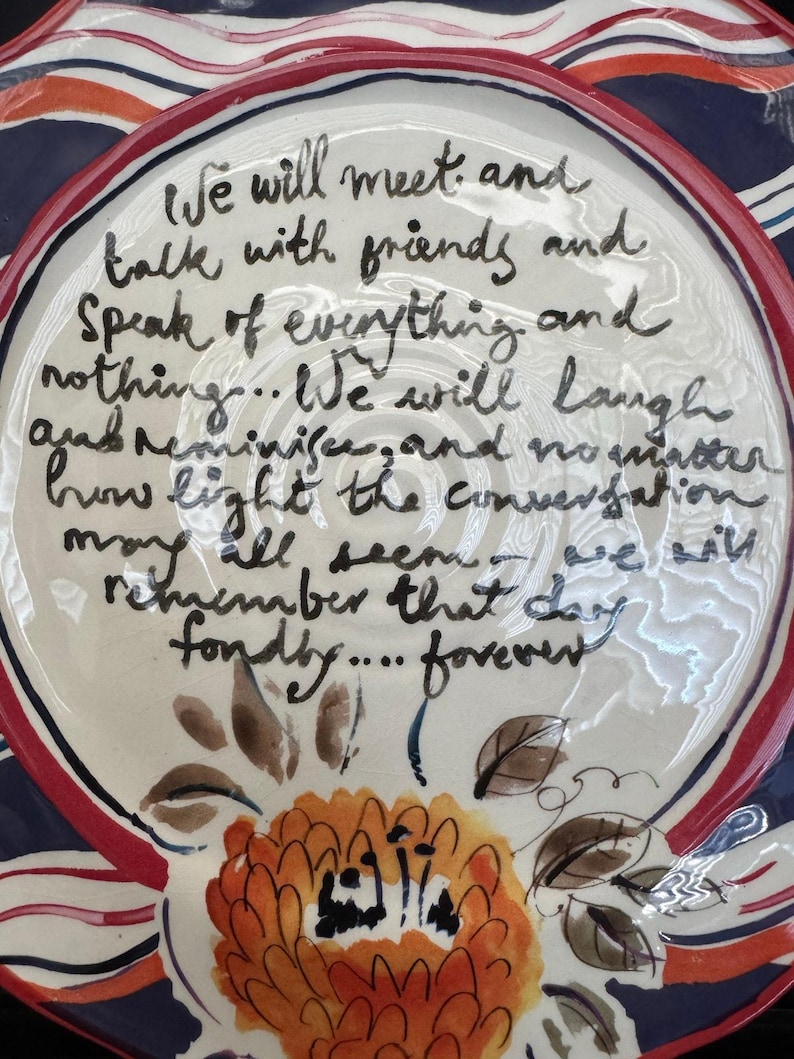 We will meet and
talk with friends and
Speak of everything and
nothing... We will laugh
and reminisce, and no matter
how light the conversation
may all seem – we will
remember that day
fondly.... forever